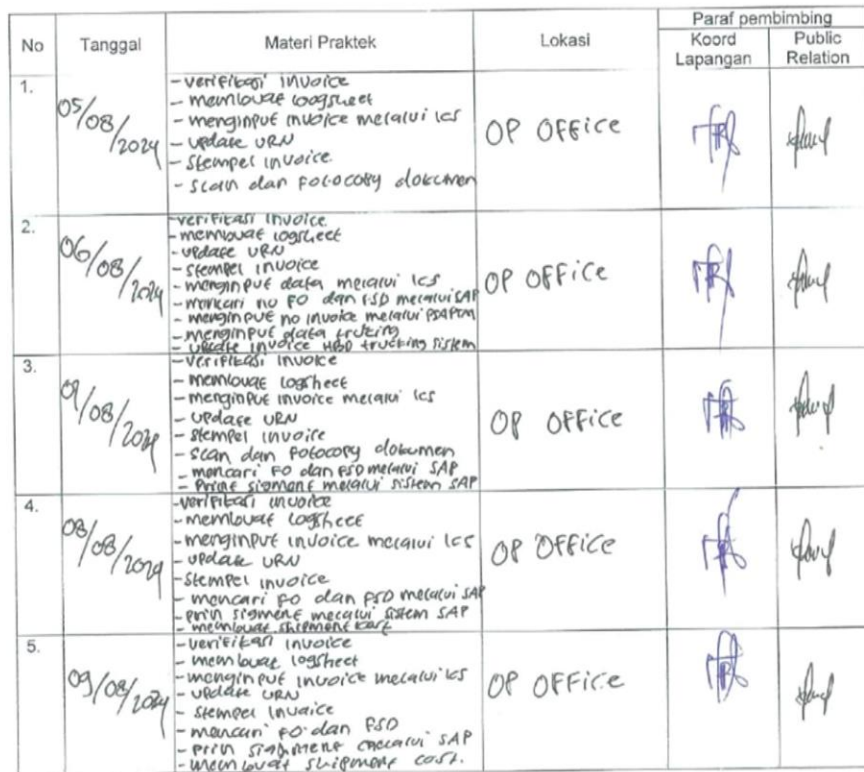 No Tanggal Materi Praktek Lokasi Paraf pembimbing
Koord Lapangan Public Relation
1. 05/08/2024 OP OFFICE
- verifikasi invoice
- membuat logsheet
- menginput invoice melalui ICS
- update URN
- stempel invoice
- scan dan fotocopy dokumen
2. 06/08/2024 OP OFFICE
- verifikasi invoice
- membuat logsheet
- update URN
- stempel invoice
- menginput data melalui ICS
- mencari no FO dan FSD melalui SAP
- menginput no invoice melalui
- menginput data trucking
- update invoice HBD trucking sistem
3. /08/2024 OP OFFICE
- verifikasi invoice
- membuat logsheet
- menginput invoice melalui ICS
- update URN
- stempel invoice
- scan dan fotocopy dokumen
- mencari FO dan FSD melalui SAP
- print sigment melalui sistem SAP
4. 08/08/2024 OP OFFICE
- verifikasi invoice
- membuat logsheet
- menginput invoice melalui ICS
- update URN
- stempel invoice
- mencari FO dan FSD melalui SAP
- prin sigment melalui sistem SAP
- membuat shipment cost
5. 09/08/2024 OP OFFICE
- verifikasi invoice
- membuat logsheet
- menginput invoice melalui ICS
- update URN
- stempel invoice
- mencari FO dan FSD
- prin sighment melalui SAP
- membuat shipment cost.